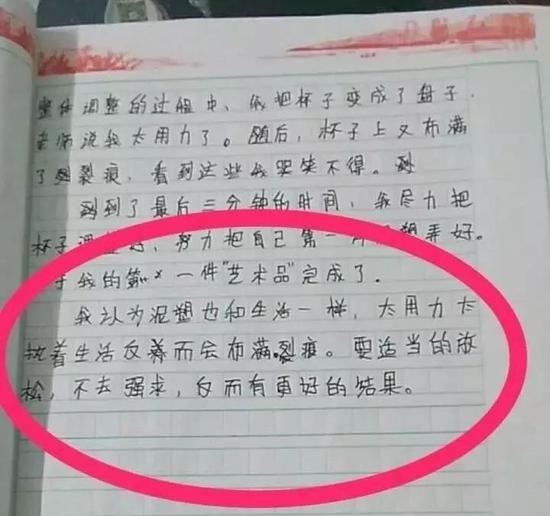 整体调整的过程中、我把杯子变成了盘子，
老师说我太用力了。随后，杯子上又布满
了裂痕，看到这些我哭笑不得。
到了最后三分钟的时间，我尽力把
杯子调整好，努力把自己第一弄好。
我的第一件"艺术品"完成了。
我认为泥塑也和生活一样，太用力太
执着生活反着而会布满裂痕。要适当的放
松，不去强求，反而有更好的结果。